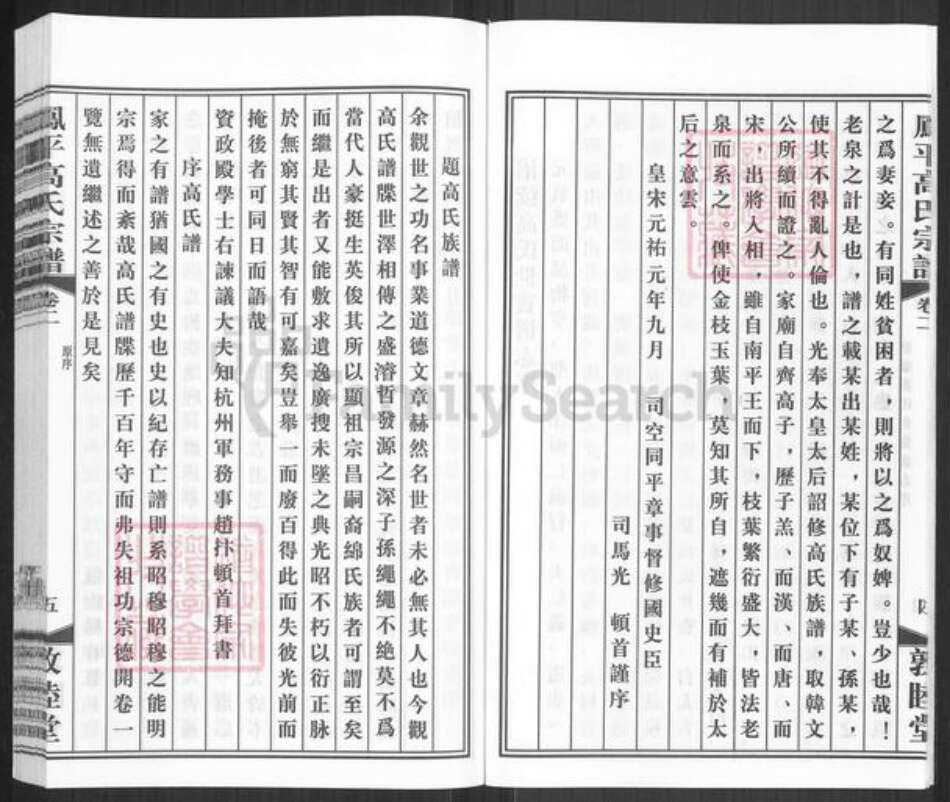 之爲妻妾。有同姓貧困者，則將以之爲奴婢。豈少也哉！
老泉之計是也，譜之載某出某姓，某位下有子某、孫某，
使其不得亂人倫也。光奉太皇太后詔修高氏族譜，取韓文
公所續而證之。家廟自齊高子，歷子羔、而漢、而唐、而
宋，出將入相，雖自南平王而下，枝葉繁衍盛大，皆法老
泉而系之。俾使金枝玉葉，莫知其所自，遮幾而有補於太
后之意雲。
皇宋元祐元年九月 司空同平章事督修國史臣
司馬光 頓首謹序
鳳平高氏宗譜 卷二 四 敦睦堂
題高氏族譜
余觀世之功名事業道德文章赫然名世者未必無其人也今觀
高氏譜牒世澤相傳之盛濬哲發源之深子孫繩繩不絶莫不爲
當代人豪挺生英俊其所以顯祖宗昌嗣裔綿氏族者可謂至矣
而繼是出者又能敷求遺逸廣搜未墜之典光昭不朽以衍正脉
於無窮其賢其智有可嘉矣豈舉一而廢百得此而失彼光前而
掩後者可同日而語哉
資政殿學士右諫議大夫知杭州軍務事趙抃頓首拜書
序高氏譜
家之有譜猶國之有史也史以紀存亡譜則系昭穆昭穆之能明
宗焉得而紊哉高氏譜牒歷千百年守而弗失祖功宗德開卷一
覽無遺繼述之善於是見矣
鳳平高氏宗譜 卷二 原序 五 敦睦堂
FamilySearch